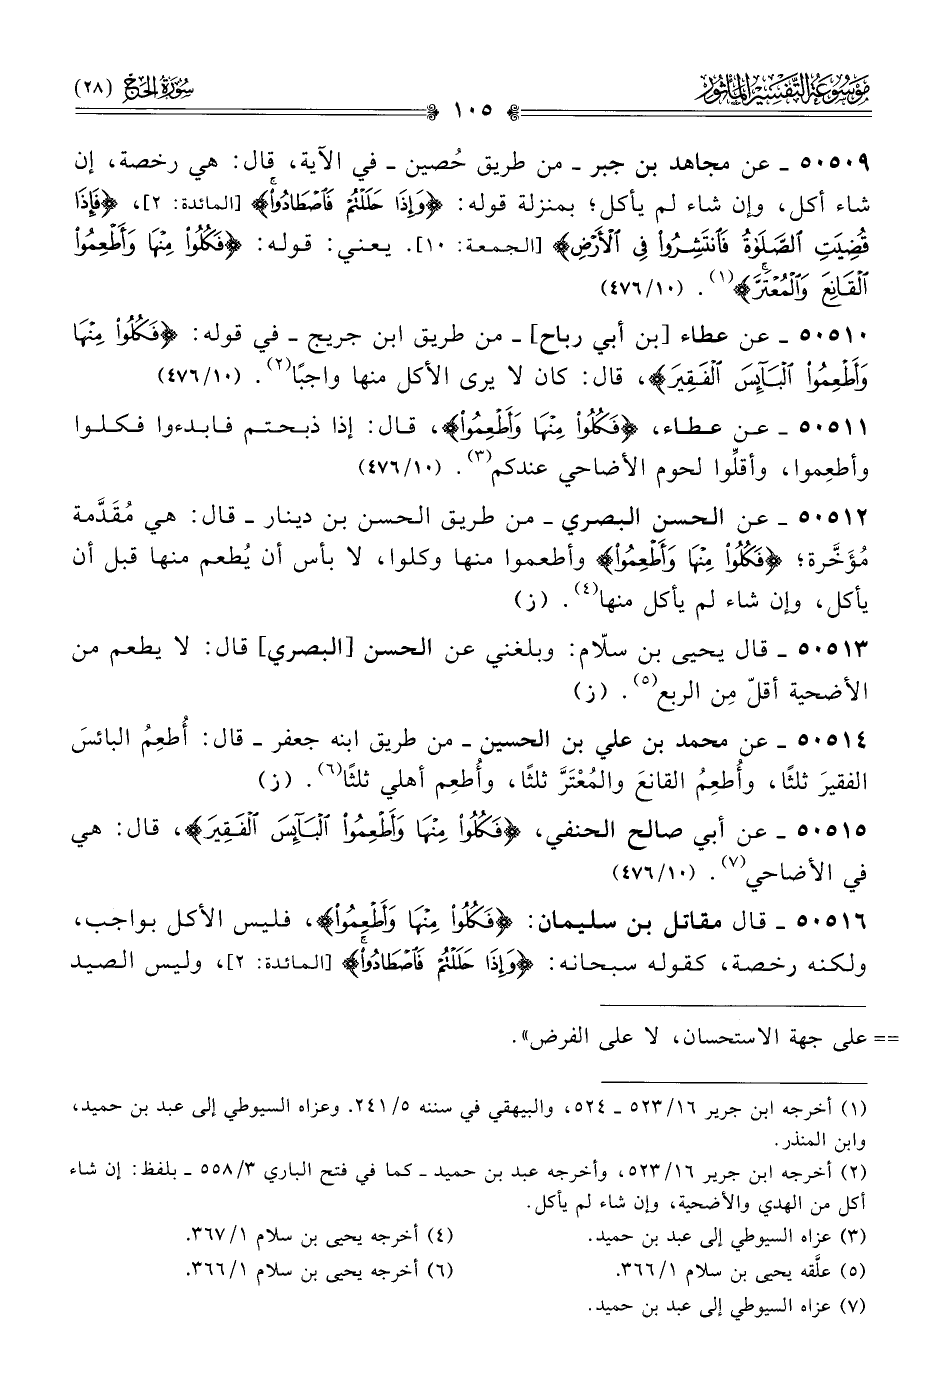 مَوْسُوعَة التَّفْسِير المَأثُور
سُورَة الحَجّ (٢٨)
١٠٥
٥٠٥٠٩ ـ عن مجاهد بن جبر ـ من طريق حُصين ـ في الآية، قال: هي رخصة، إن
شاء أكل، وإن شاء لم يأكل؛ بمنزلة قوله: ﴿وَإِذَا حَلَلْتُمْ فَٱصْطَادُوا۟ۚ﴾ [المائدة: ٢]، ﴿فَإِذَا
قُضِيَتِ ٱلصَّلَوٰةُ فَٱنتَشِرُوا۟ فِى ٱلْأَرْضِ﴾ [الجمعة: ١٠]. يعني: قوله: ﴿فَكُلُوا۟ مِنْهَا وَأَطْعِمُوا۟
ٱلْقَانِعَ وَٱلْمُعْتَرَّۚ﴾(١). (١٠/ ٤٧٦)
٥٠٥١٠ ـ عن عطاء [بن أبي رباح] ـ من طريق ابن جريج ـ في قوله: ﴿فَكُلُوا۟ مِنْهَا
وَأَطْعِمُوا۟ ٱلْبَآئِسَ ٱلْفَقِيرَ﴾، قال: كان لا يرى الأكل منها واجبًا(٢). (١٠/ ٤٧٦)
٥٠٥١١ ـ عن عطاء، ﴿فَكُلُوا۟ مِنْهَا وَأَطْعِمُوا۟﴾، قال: إذا ذبحتم فابدءوا فكلوا
وأطعِموا، وأقلُّوا لحوم الأضاحي عندكم(٣). (١٠/ ٤٧٦)
٥٠٥١٢ ـ عن الحسن البصري ـ من طريق الحسن بن دينار ـ قال: هي مُقَدَّمة
مُؤَخَّرة؛ ﴿فَكُلُوا۟ مِنْهَا وَأَطْعِمُوا۟﴾ وأطعموا منها وكلوا، لا بأس أن يُطعم منها قبل أن
يأكل، وإن شاء لم يأكل منها(٤). (ز)
٥٠٥١٣ ـ قال يحيى بن سلّام: وبلغني عن الحسن [البصري] قال: لا يطعم من
الأضحية أقلّ مِن الربع(٥). (ز)
٥٠٥١٤ ـ عن محمد بن علي بن الحسين ـ من طريق ابنه جعفر ـ قال: أُطعِمُ البائسَ
الفقيرَ ثلثًا، وأُطعِمُ القانعَ والمُعْتَرَّ ثلثًا، وأُطعِم أهلي ثلثًا(٦). (ز)
٥٠٥١٥ ـ عن أبي صالح الحنفي، ﴿فَكُلُوا۟ مِنْهَا وَأَطْعِمُوا۟ ٱلْبَآئِسَ ٱلْفَقِيرَ﴾، قال: هي
في الأضاحي(٧). (١٠/ ٤٧٦)
٥٠٥١٦ ـ قال مقاتل بن سليمان: ﴿فَكُلُوا۟ مِنْهَا وَأَطْعِمُوا۟﴾، فليس الأكل بواجب،
ولكنه رخصة، كقوله سبحانه: ﴿وَإِذَا حَلَلْتُمْ فَٱصْطَادُوا۟ۚ﴾ [المائدة: ٢]، وليس الصيد
== على جهة الاستحسان، لا على الفرض».
(١) أخرجه ابن جرير ١٦/ ٥٢٣ ـ ٥٢٤، والبيهقي في سننه ٥/ ٢٤١. وعزاه السيوطي إلى عبد بن حميد،
وابن المنذر.
(٢) أخرجه ابن جرير ١٦/ ٥٢٣، وأخرجه عبد بن حميد ـ كما في فتح الباري ٣/ ٥٥٨ ـ بلفظ: إن شاء
أكل من الهدي والأضحية، وإن شاء لم يأكل.
(٣) عزاه السيوطي إلى عبد بن حميد. (٤) أخرجه يحيى بن سلام ١/ ٣٦٧.
(٥) علَّقه يحيى بن سلام ١/ ٣٦٦. (٦) أخرجه يحيى بن سلام ١/ ٣٦٦.
(٧) عزاه السيوطي إلى عبد بن حميد.